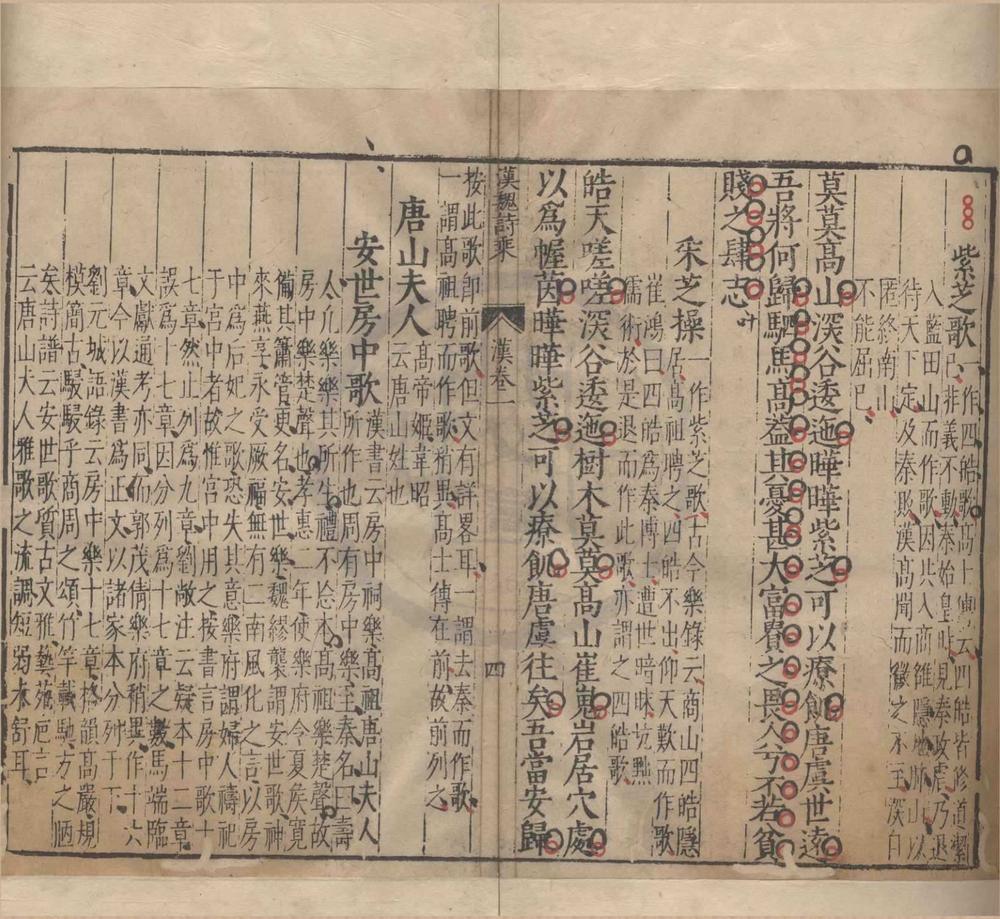 紫芝歌 一作四皓歌高士傳云四皓皆修道潔
己非義不動秦始皇時見秦政虐乃退
入藍田山而作歌因共入商雒隱地肺山以
待天下定及秦敗漢高聞而徵之不至深自
匿終南山
不能屈已
莫莫高山深谷逶迤曄曄紫芝可以療飢唐虞世遠
吾將何歸駟馬高蓋其憂甚大富貴之畏人兮不若貧
賤之肆志
采芝操 一作紫芝歌古今樂錄云商山四皓隱
居高祖聘之四皓不出仰天歎而作歌
崔鴻曰四皓爲秦博士遭世暗昧坑黜
儒術於是退而作此歌亦謂之四皓歌
皓天嗟嗟深谷逶迤樹木莫莫高山崔嵬岩居穴處
以爲幄茵曄曄紫芝可以療飢唐虞往矣吾當安歸
漢魏詩乘
漢卷一
四
按此歌即前歌但文有詳畧耳一謂去秦而作歌
一謂高祖聘而作歌稍異高士傳在前故前列之
唐山夫人 高帝姬韋昭
云唐山姓也
安世房中歌 漢書云房中祠樂高祖唐山夫人
所作也周有房中樂至秦名曰壽
人凢樂樂其所生禮不忘本高祖樂楚聲故
房中樂楚聲也孝惠二年使樂府令夏侯寬
備其簫管更名安世樂魏繆襲謂安世歌神
來燕享永受厥福無有二南風化之言以房
中爲后妃之歌恐失其意樂府謂婦人禱祀
于宮中者故惟宮中用之按書言房中歌十
七章然止列爲九章劉敞注云疑本十二章
誤爲十七章因分列爲十七章之數馬端臨
文獻通考亦同而郭茂倩樂府稍異作十六
章今以漢書爲正文以諸家本分列于下
劉元城語錄云房中樂十七章格韻高嚴規
模簡古駸駸乎商周之頌竹竿載馳方之陋
矣詩譜云安世歌質古文雅藝苑巵言
云唐山夫人雅歌之流調短弱未舒耳